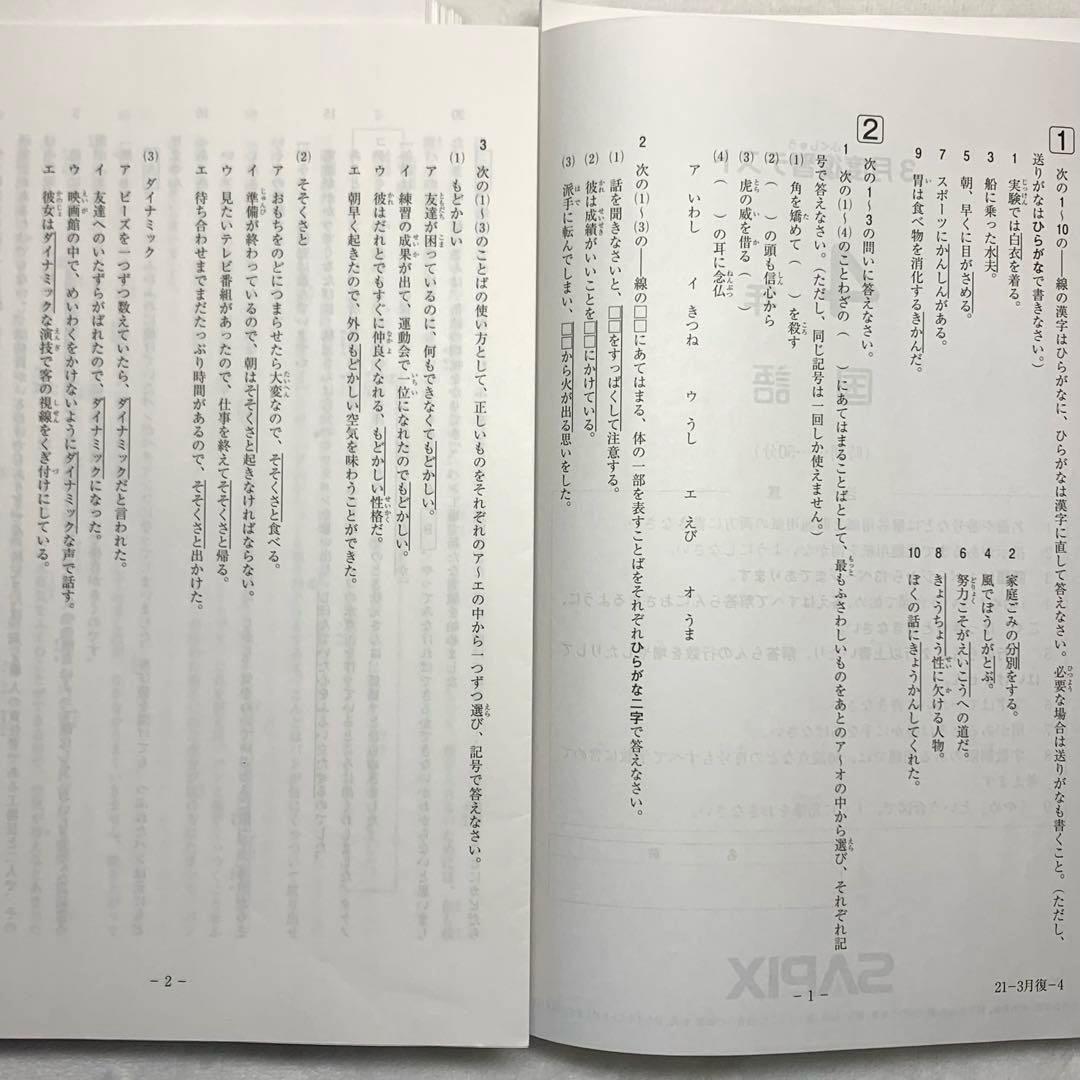 1 次の1～10の――線の漢字はひらがなに、ひらがなは漢字に直して答えなさい。必要な場合は送りがなも書くこと。（ただし、
送りがなはひらがなで書きなさい。）
1 実験では白衣を着る。
2 家庭ごみの分別をする。
3 船に乗った水夫。
4 風でぼうしがとぶ。
5 朝、早くに目がさめる。
6 努力こそがえいこうへの道だ。
7 スポーツにかんしんがある。
8 きょうちょう性に欠ける人物。
9 胃は食べ物を消化するきかんだ。
10 ぼくの話にきょうかんしてくれた。
2 次の1～3の問いに答えなさい。
1 次の(1)～(4)のことわざの（　）にあてはまることばとして、最もふさわしいものをあとのア～オの中から選び、それぞれ記
号で答えなさい。（ただし、同じ記号は一回しか使えません。）
(1) 角を矯めて（　）を殺す
(2) （　）の頭も信心から
(3) 虎の威を借る（　）
(4) （　）の耳に念仏
ア いわし　イ きつね　ウ うし　エ えび　オ うま
2 次の(1)～(3)の――線の□□にあてはまる、体の一部を表すことばをそれぞれひらがな二字で答えなさい。
(1) 話を聞きなさいと、□□をすっぱくして注意する。
(2) 彼は成績がいいことを□□にかけている。
(3) 派手に転んでしまい、□□から火が出る思いをした。
21-3月復-4
－1－
SAPIX
3 次の(1)～(3)のことばの使い方として、正しいものをそれぞれのア～エの中から一つずつ選び、記号で答えなさい。
(1) もどかしい
ア 友達が困っているのに、何もできなくてもどかしい。
イ 練習の成果が出て、運動会で一位になれたのでもどかしい。
ウ 彼はだれとでもすぐに仲良くなれる、もどかしい性格だ。
エ 朝早く起きたので、外のもどかしい空気を味わうことができた。
(2) そそくさと
ア おもちをのどにつまらせたら大変なので、そそくさと食べる。
イ 準備が終わっているので、朝はそそくさと起きなければならない。
ウ 見たいテレビ番組があったので、仕事を終えてそそくさと帰る。
エ 待ち合わせまでまだたっぷり時間があるので、そそくさと出かけた。
(3) ダイナミック
ア ビーズを一つずつ数えていたら、ダイナミックだと言われた。
イ 友達へのいたずらがばれたので、ダイナミックになった。
ウ 映画館の中で、めいわくをかけないようにダイナミックな声で話す。
エ 彼女はダイナミックな演技で客の視線をくぎ付けにしている。
－2－